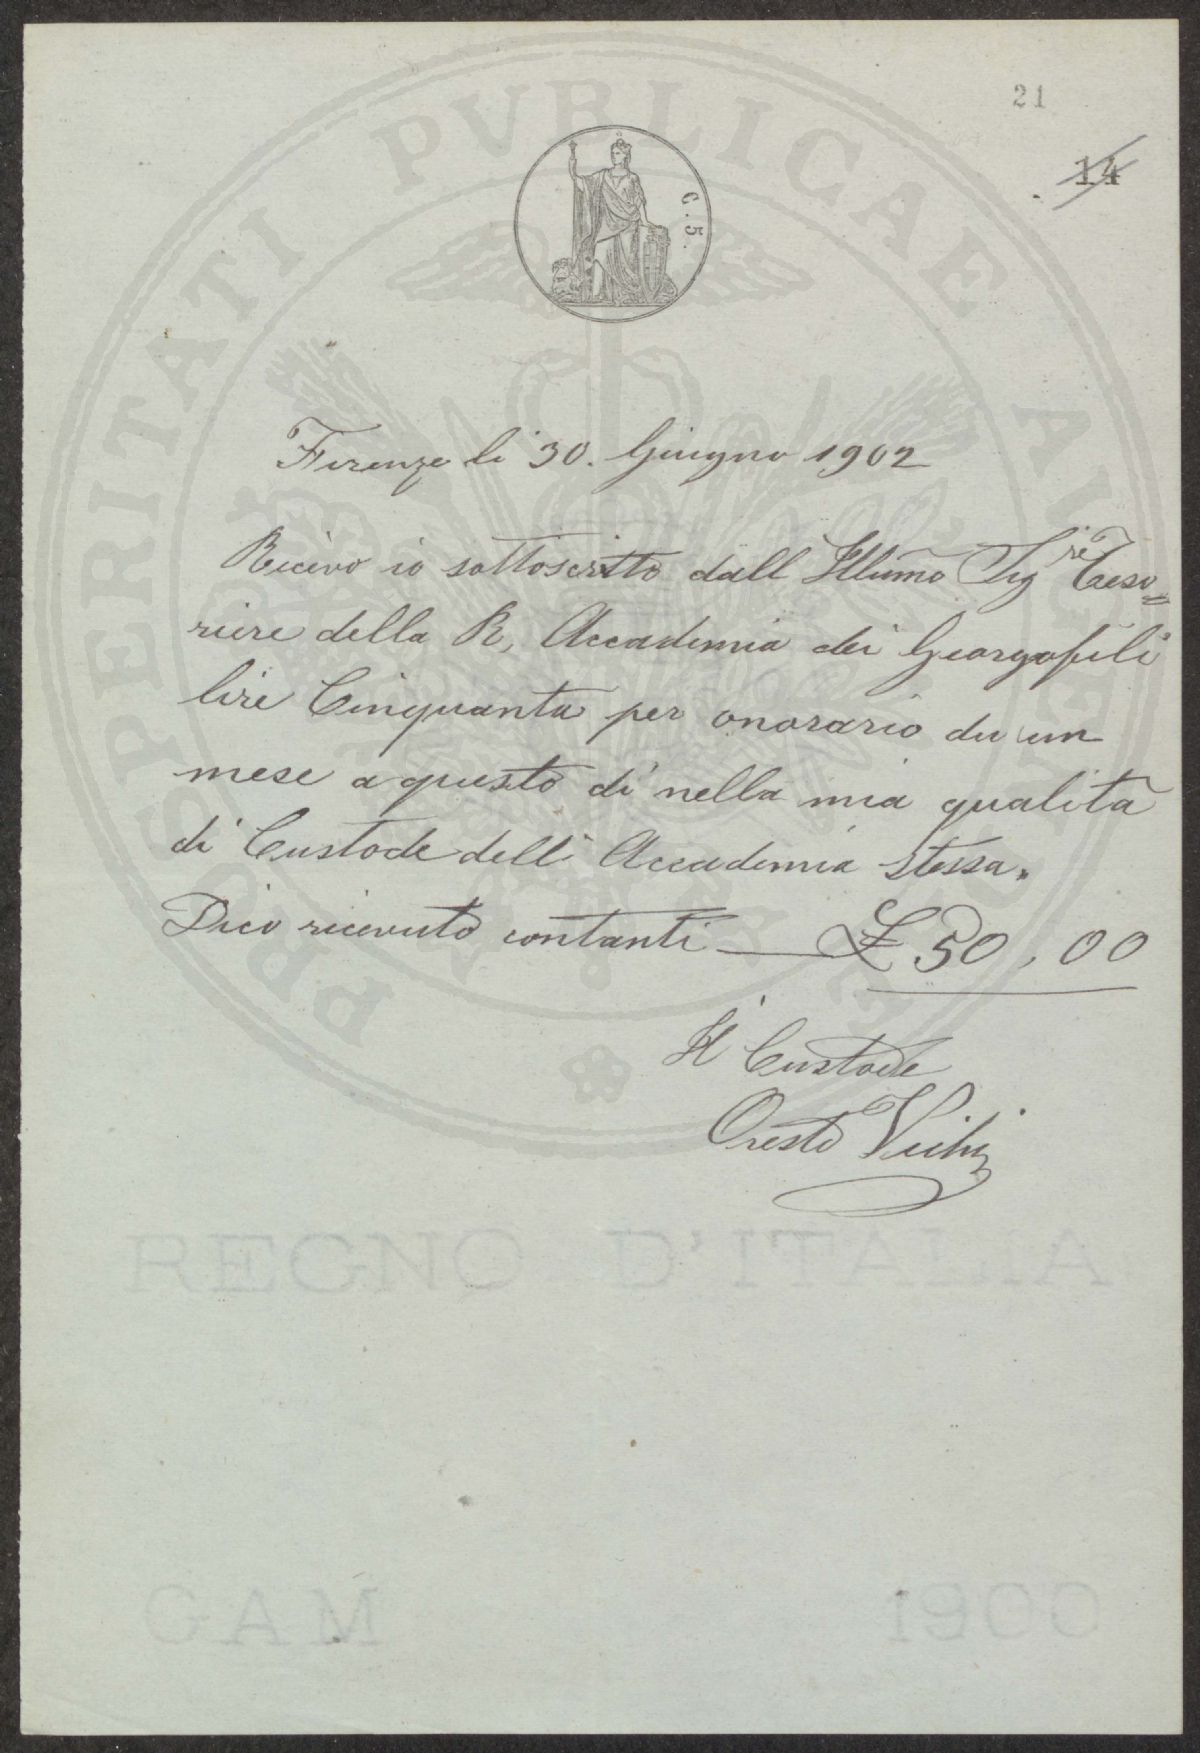 21
14
C. 5.
PROSPERITATI PVBLICAE AVGENDAE
Firenze li 30. Giugno 1902
Ricevo io sottoscritto dall Illumo Sigre Teso=
riere della R. Accademia dei Georgofili
lire Cinquanta per onorario di un
mese a questo dì nella mia qualita
di Custode dell' Accademia stessa.
Dico ricevuto contanti — £ 50,00
Il Custode
Oreste
REGNO D'ITALIA
GAM 1900